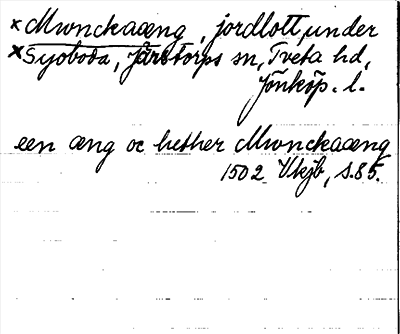 ×Mwnckaæng, jordlott, under
×Sjoboda, Järstorps sn, Tveta hd,
Jönköp. l.
een æng oc hether Mwnckaæng
1502 Vkjb, s.85.